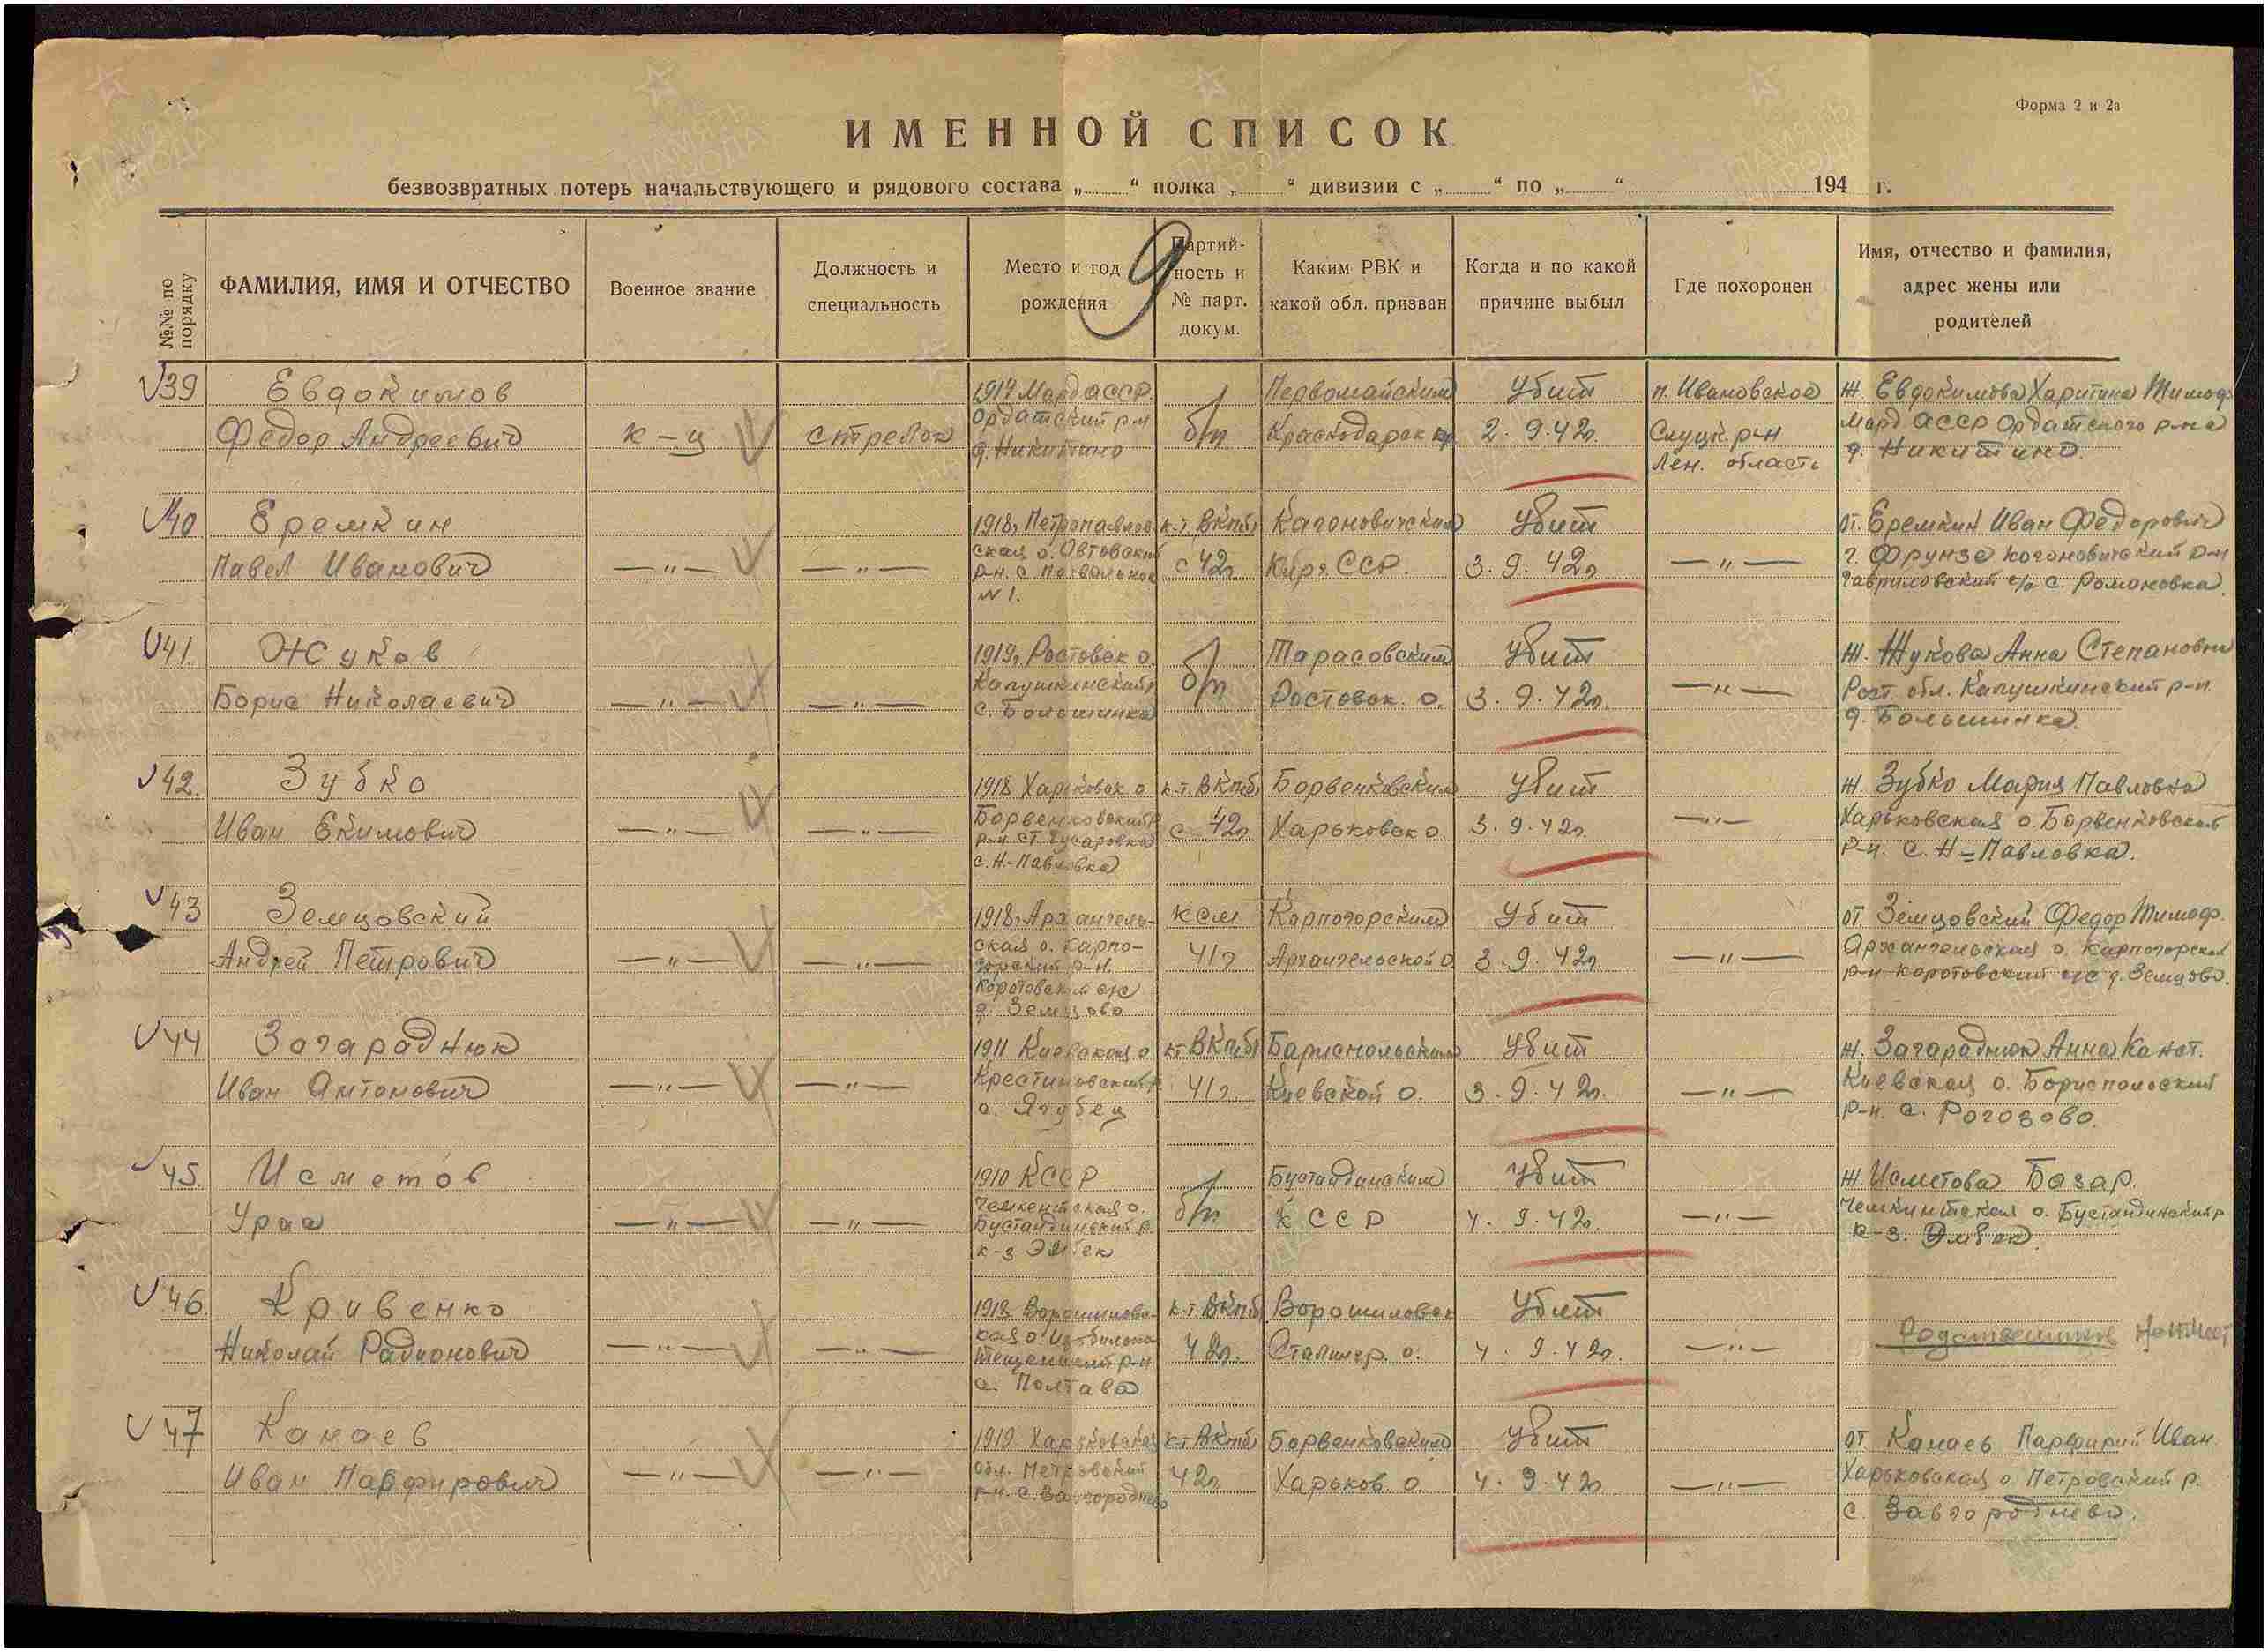 Форма 2 и 2а
ИМЕННОЙ СПИСОК
безвозвратных потерь начальствующего и рядового состава „ “ полка „ “ дивизии с „ “ по „ “ 194 г.
9
№№ по порядку
ФАМИЛИЯ, ИМЯ И ОТЧЕСТВО
Военное звание
Должность и
специальность
Место и год
рождения
Партий-
ность и
№ парт.
докум.
Каким РВК и
какой обл. призван
Когда и по какой
причине выбыл
Где похоронен
Имя, отчество и фамилия,
адрес жены или
родителей
39
Евдокимов
Федор Андреевич
к-ц
стрелок
1914 Морд АССР.
Ордатский р-н
д. Никитино
б/п
Первомайским
Краснодарск кр
убит
2. 9. 42г.
п. Ивановское
Слуцк р-н
Лен. область
ж Евдокимова Харитина Тимоф
Морд АССР Ордатского р-на
д. Никитино.
40
Еремкин
Павел Иванович
—"—
—"—
1918г Петропавлов-
ская о.
р-н. с.
№1.
к-т ВКПб
с 42г
Кагоновичским
Кирг ССР.
убит
3. 9. 42г
—"—
от. Еремкин Иван Федорович
г. Фрунзе Когоновичский р-н
Гавриловский с/с с. Романовка.
41.
Жуков
Борис Николаевич
—"—
—"—
1919г Ростовск о.
с. Большинка
б/п
Тарасовским
Ростовск. о.
убит
3. 9. 42г.
—"—
ж. Жукова Анна Степановна
Рост. обл. р-н.
д. Большинка.
42.
Зубко
Иван Екимович
—"—
—"—
1918 Харьковск о
Борвенковский
р-н ст. Гусаровка
с. Н-Павловка
к-т. ВКПб
с 42г
Борвенковским
Харьковск о.
убит
3. 9. 42г.
—"—
ж. Зубко Мария Павловна
Харьковская о. Борвенковский
р-н. с. Н-Павловка.
43
Земцовский
Андрей Петрович
—"—
—"—
1918г Архангель-
ская о. Карпо-
горский р-н.
Коротовский с/с
д. Земцово
ксм
41г
Карпогорским
Архангельской о
убит
3. 9. 42г.
—"—
от Земцовский Федор Тимоф.
Архангельская о. Карпогорский
р-н Коротовский с/с д. Земцово.
44
Загараднюк
Иван Антонович
—"—
—"—
1911 Киевская о
Крестиновский р
с. Ягубец
кт ВКПб
41г.
Бариспольским
Киевской о.
убит
3. 9. 42г.
—"—
ж. Загараднюк Анна Конст.
Киевская о. Бориспольский
р-н. с. Рогозово.
45.
Исметов
Ураз
—"—
—"—
1910 КССР
Чемкентская о.
Бустандинский р.
к-з
б/п
Бустандинским
К ССР
убит
4. 9. 42г.
—"—
ж. Исметова Базар.
Чемкинтская о. Бустандинский р
к-з.
46.
Кривенко
Николай Радионович
—"—
—"—
1918 Ворошиловс-
кая о
р-н
с. Полтава
к-т ВКПб
42г.
Ворошиловск
Сталингр. о.
убит
4. 9. 42г.
—"—
Родственников не имеет
47
Канаев
Иван Парфирович
—"—
—"—
1919 Харьковская
обл. Петровский
р-н. с. Завгороднево
к-т ВКПб
42г.
Борвенковским
Харьков. о.
убит
4. 9. 42г
—"—
от Канаев Парфирий Иван.
Харьковская о Петровский р.
с. Завгороднево.